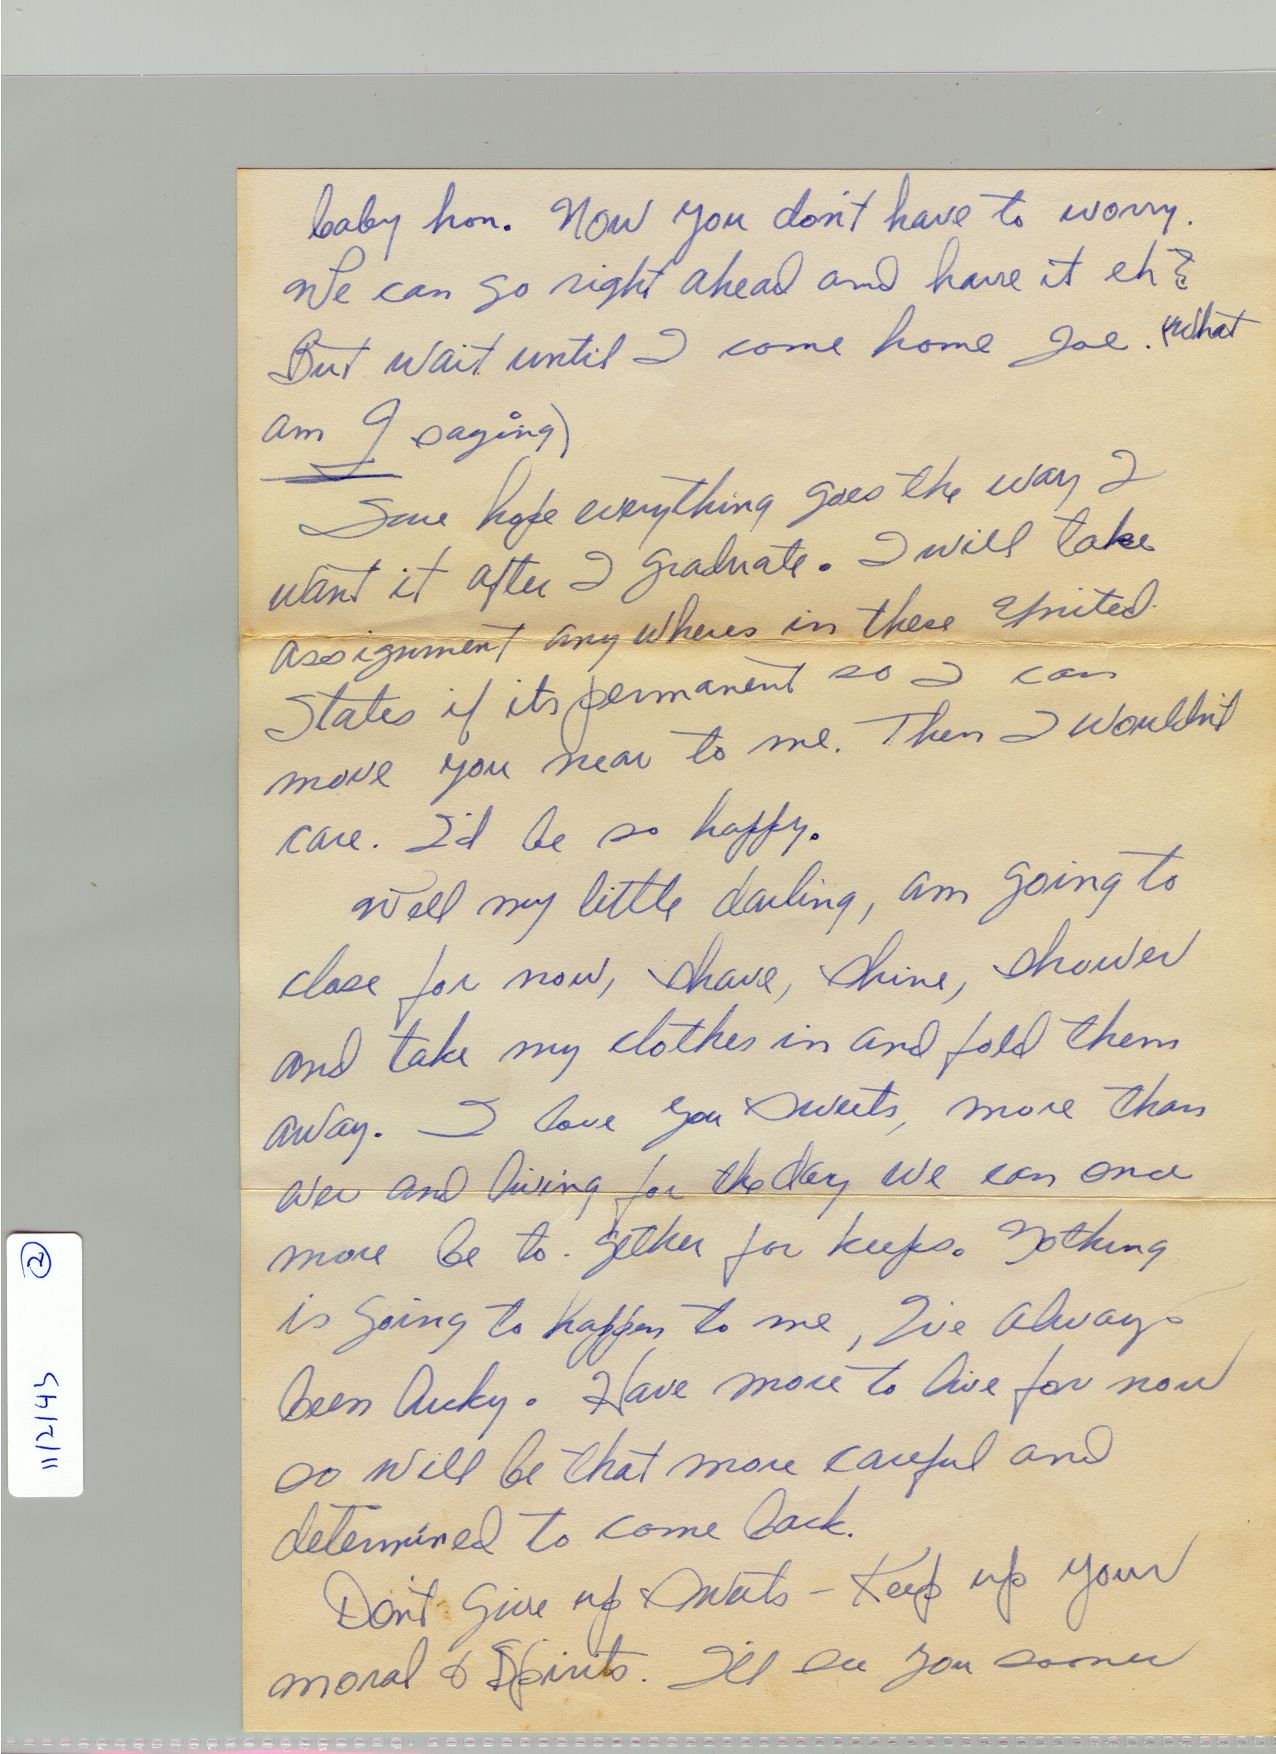 baby hon. Now you don't have to worry.
We can go right ahead and have it eh?
But wait until I come home Joe. (what
am I saying)
Sure hope everything goes the way I
want it after I graduate. I will take
assignment anywheres in these United
States if its permanent so I can
move you near to me. Then I wouldn't
care. I'd be so happy.
Well my little darling, am going to
close for now, shave, shine, shower
and take my clothes in and fold them
away. I love you sweets, more than
ever and living for the day we can once
more be to-gether for keeps. Nothing
is going to happen to me, I've always
been lucky. Have more to live for now
so will be that more careful and
determined to come back.
Don't give up sweets - Keep up your
moral & spirits. I'll see you sooner
11/2/43 2